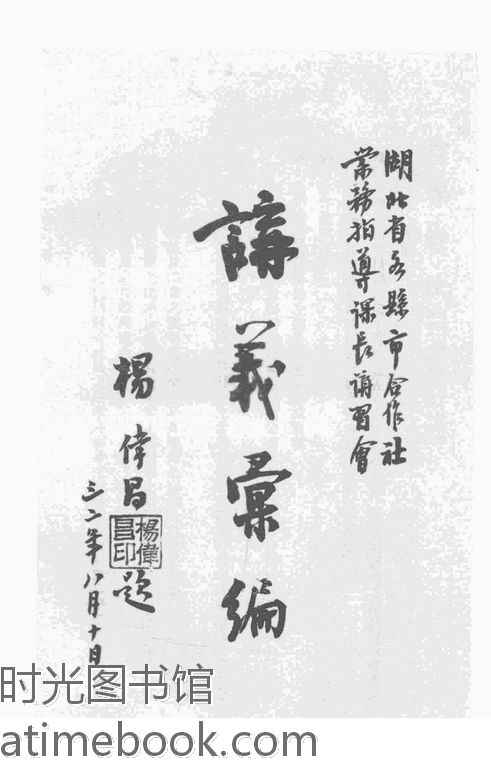 湖北省各縣市合作社
業務指導課長講習會
講義彙編
楊偉昌題
楊偉昌印
三二年八月十日
时光图书馆
atimebook.com